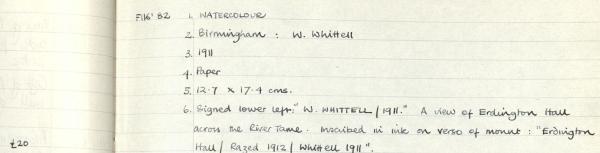 F116'82 1. WATERCOLOUR
2. Birmingham : W. Whittell
3. 1911
4. Paper
5. 12.7 x 17.4 cms.
6. Signed lower left: "W. WHITTELL / 1911." A view of Erdington Hall
across the River Tame. Inscribed in ink on verso of mount : "Erdington
£20 Hall / Razed 1912 / Whittell 1911".